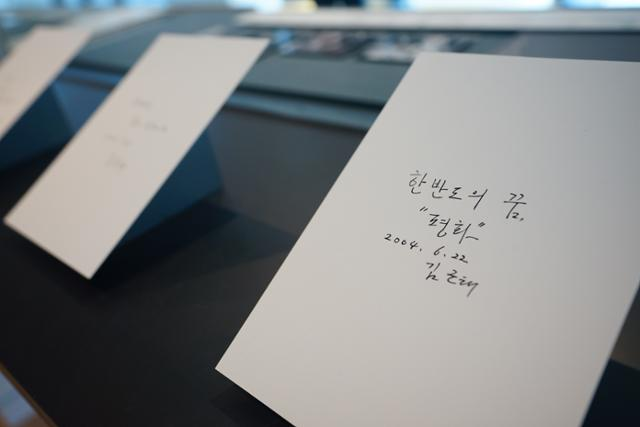 한반도의 꿈,
"평화"
2004. 6. 22
김근태